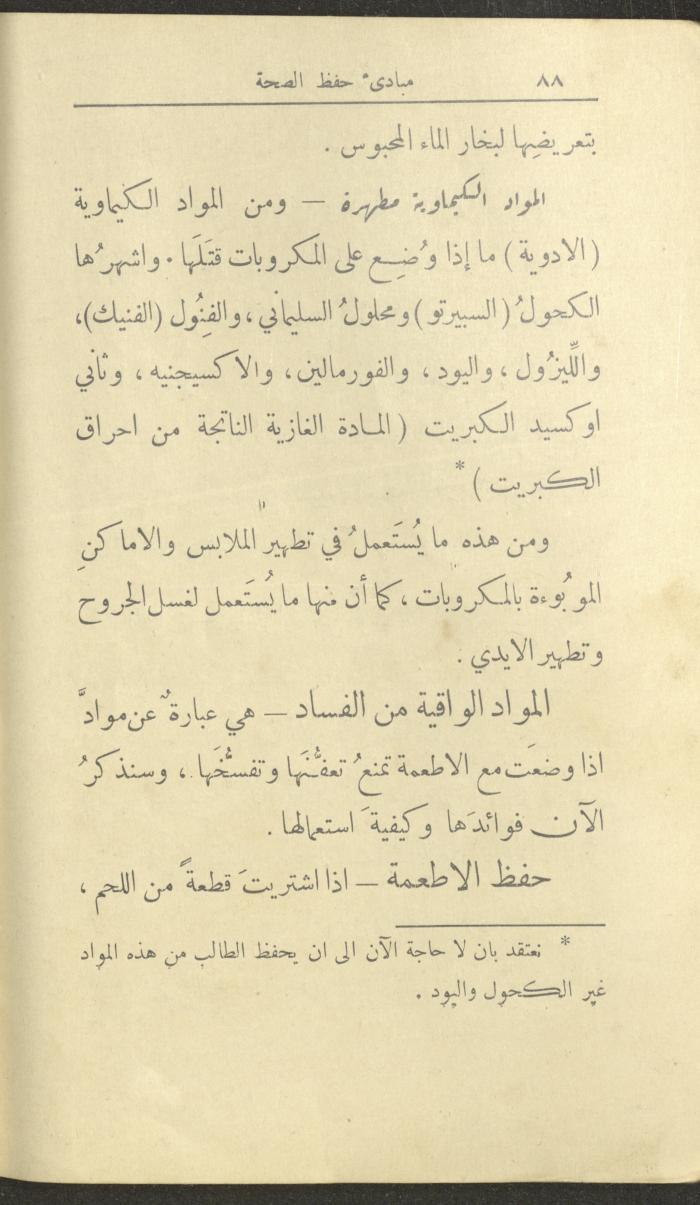 ٨٨ مبادىء حفظ الصحة
بتعريضِها لبخار الماء المحبوس .
المواد الكيماوية مطهرة — ومن المواد الكيماوية
(الادوية) ما إذا وُضِع على المكروبات قتَلَها . واشهرُها
الكحولُ (السبيرتو) ومحلولُ السليماني ، والفِنُول (الفنيك)،
واللِّيزُول ، واليود ، والفورمالين ، والاكسيجنيه ، وثاني
اوكسيد الكبريت (المادة الغازية الناتجة من احراق
الكبريت) *
ومن هذه ما يُستَعملُ في تطهير الملابس والاماكنِ
الموبُوءة بالمكروبات ، كما أن منها ما يُستَعمل لغسل الجروح
وتطهير الايدي .
المواد الواقية من الفساد — هي عبارةٌ عن موادَّ
اذا وضعَت مع الاطعمة تمنعُ تعفُّنَها وتفسُّخَها ، وسنذكرُ
الآن فوائدَها وكيفيةَ استعمالها .
حفظ الاطعمة — اذا اشتريتَ قطعةً من اللحم ،
* نعتقد بان لا حاجة الآن الى ان يحفظ الطالب من هذه المواد
غير الكحول واليود .